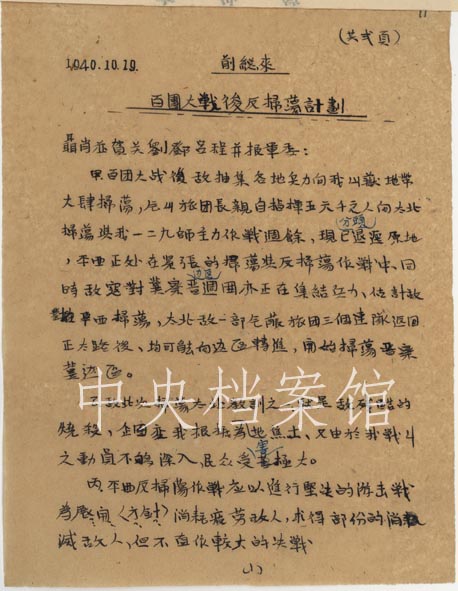 (共弍頁)
1940.10.19. 前総來
百團大戰後反掃蕩計劃
聶肖並賀关劉鄧呂程并报軍委:
甲百团大战後敌抽集各地兵力向我山嶽地帶
大肆掃蕩,片山旅团長親自指揮五六千之人向太北
分頭
掃蕩與我一二九師主力作戰週餘,現已退返原地
,平西正处在緊張的掃蕩與反掃蕩作戰中,同
边區
時敌寇對冀察晉週围亦正在集結兵力,估計敌
平西掃蕩,太北敌一部 旅团三個連隊返回
正太路後,均可能向边區轉進,開始掃蕩晋察
冀边區。
乙敌此次掃蕩 是敌殘酷的
燒殺,企图在我根據地 焦土,又由於我戰斗
害
之動員不夠深入,民众受 極大。
丙,平西反掃蕩作戰应以進行堅決的游击戰
為 (方針)消耗疲劳敌人,求得部份的消
滅敌人,但不宜作較大的决戰
(1)
中央档案馆